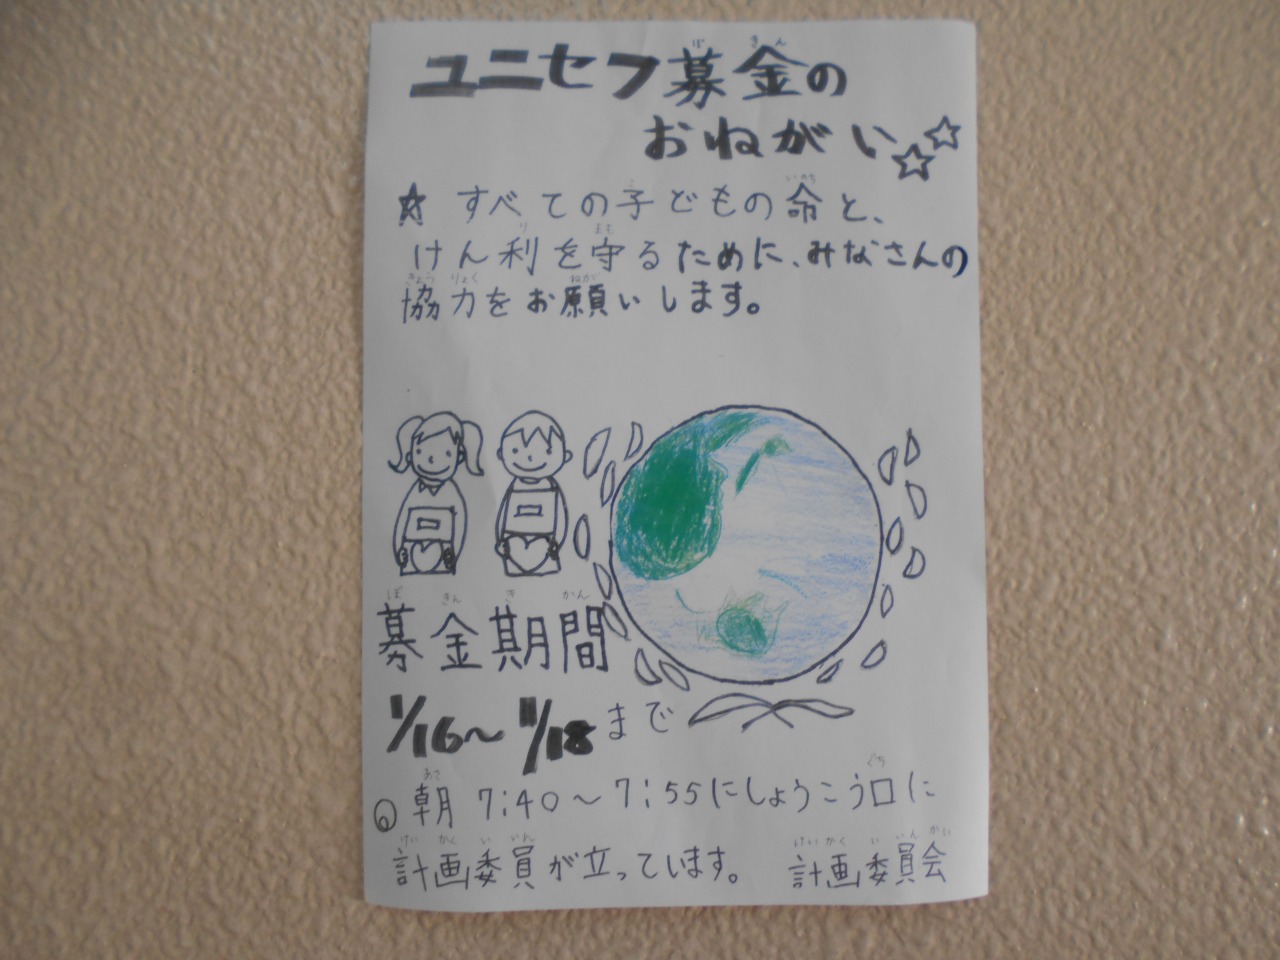 ユニセフ募金の
おねがい☆☆
☆ すべての子どもの命と、
けん利を守るために、みなさんの
協力をお願いします。
募金期間
1/16〜1/18まで
◎朝 7:40〜7:55にしょうこう口に
計画委員が立っています。 計画委員会